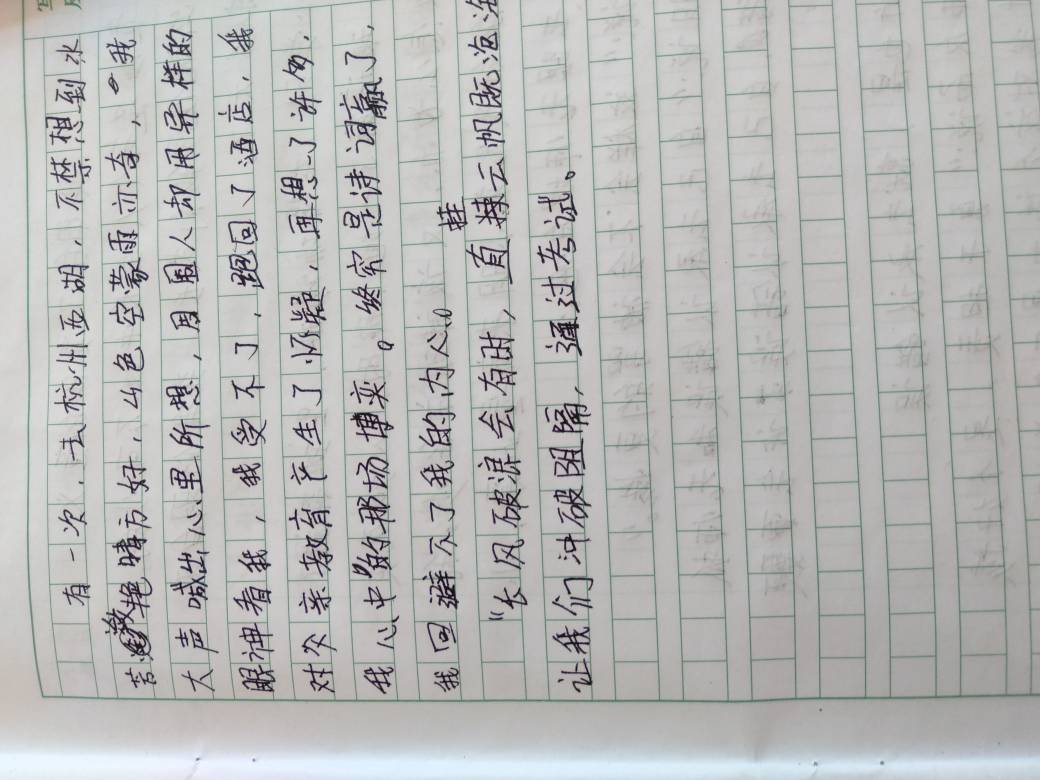 有一次，去杭州西湖，不禁想到水
光潋艳晴方好，山色空蒙雨亦奇，我
大声喊出心里所想，周围人却用异样的
眼神看我，我受不了，跑回了酒店，我
对父亲教育产生了怀疑，再想了许多，
我心中的那场博弈。终究是诗词赢了，
我回避不了我的内心。
“长风破浪会有时，直挂云帆既沧海
让我们冲破阻隔，通过考试。